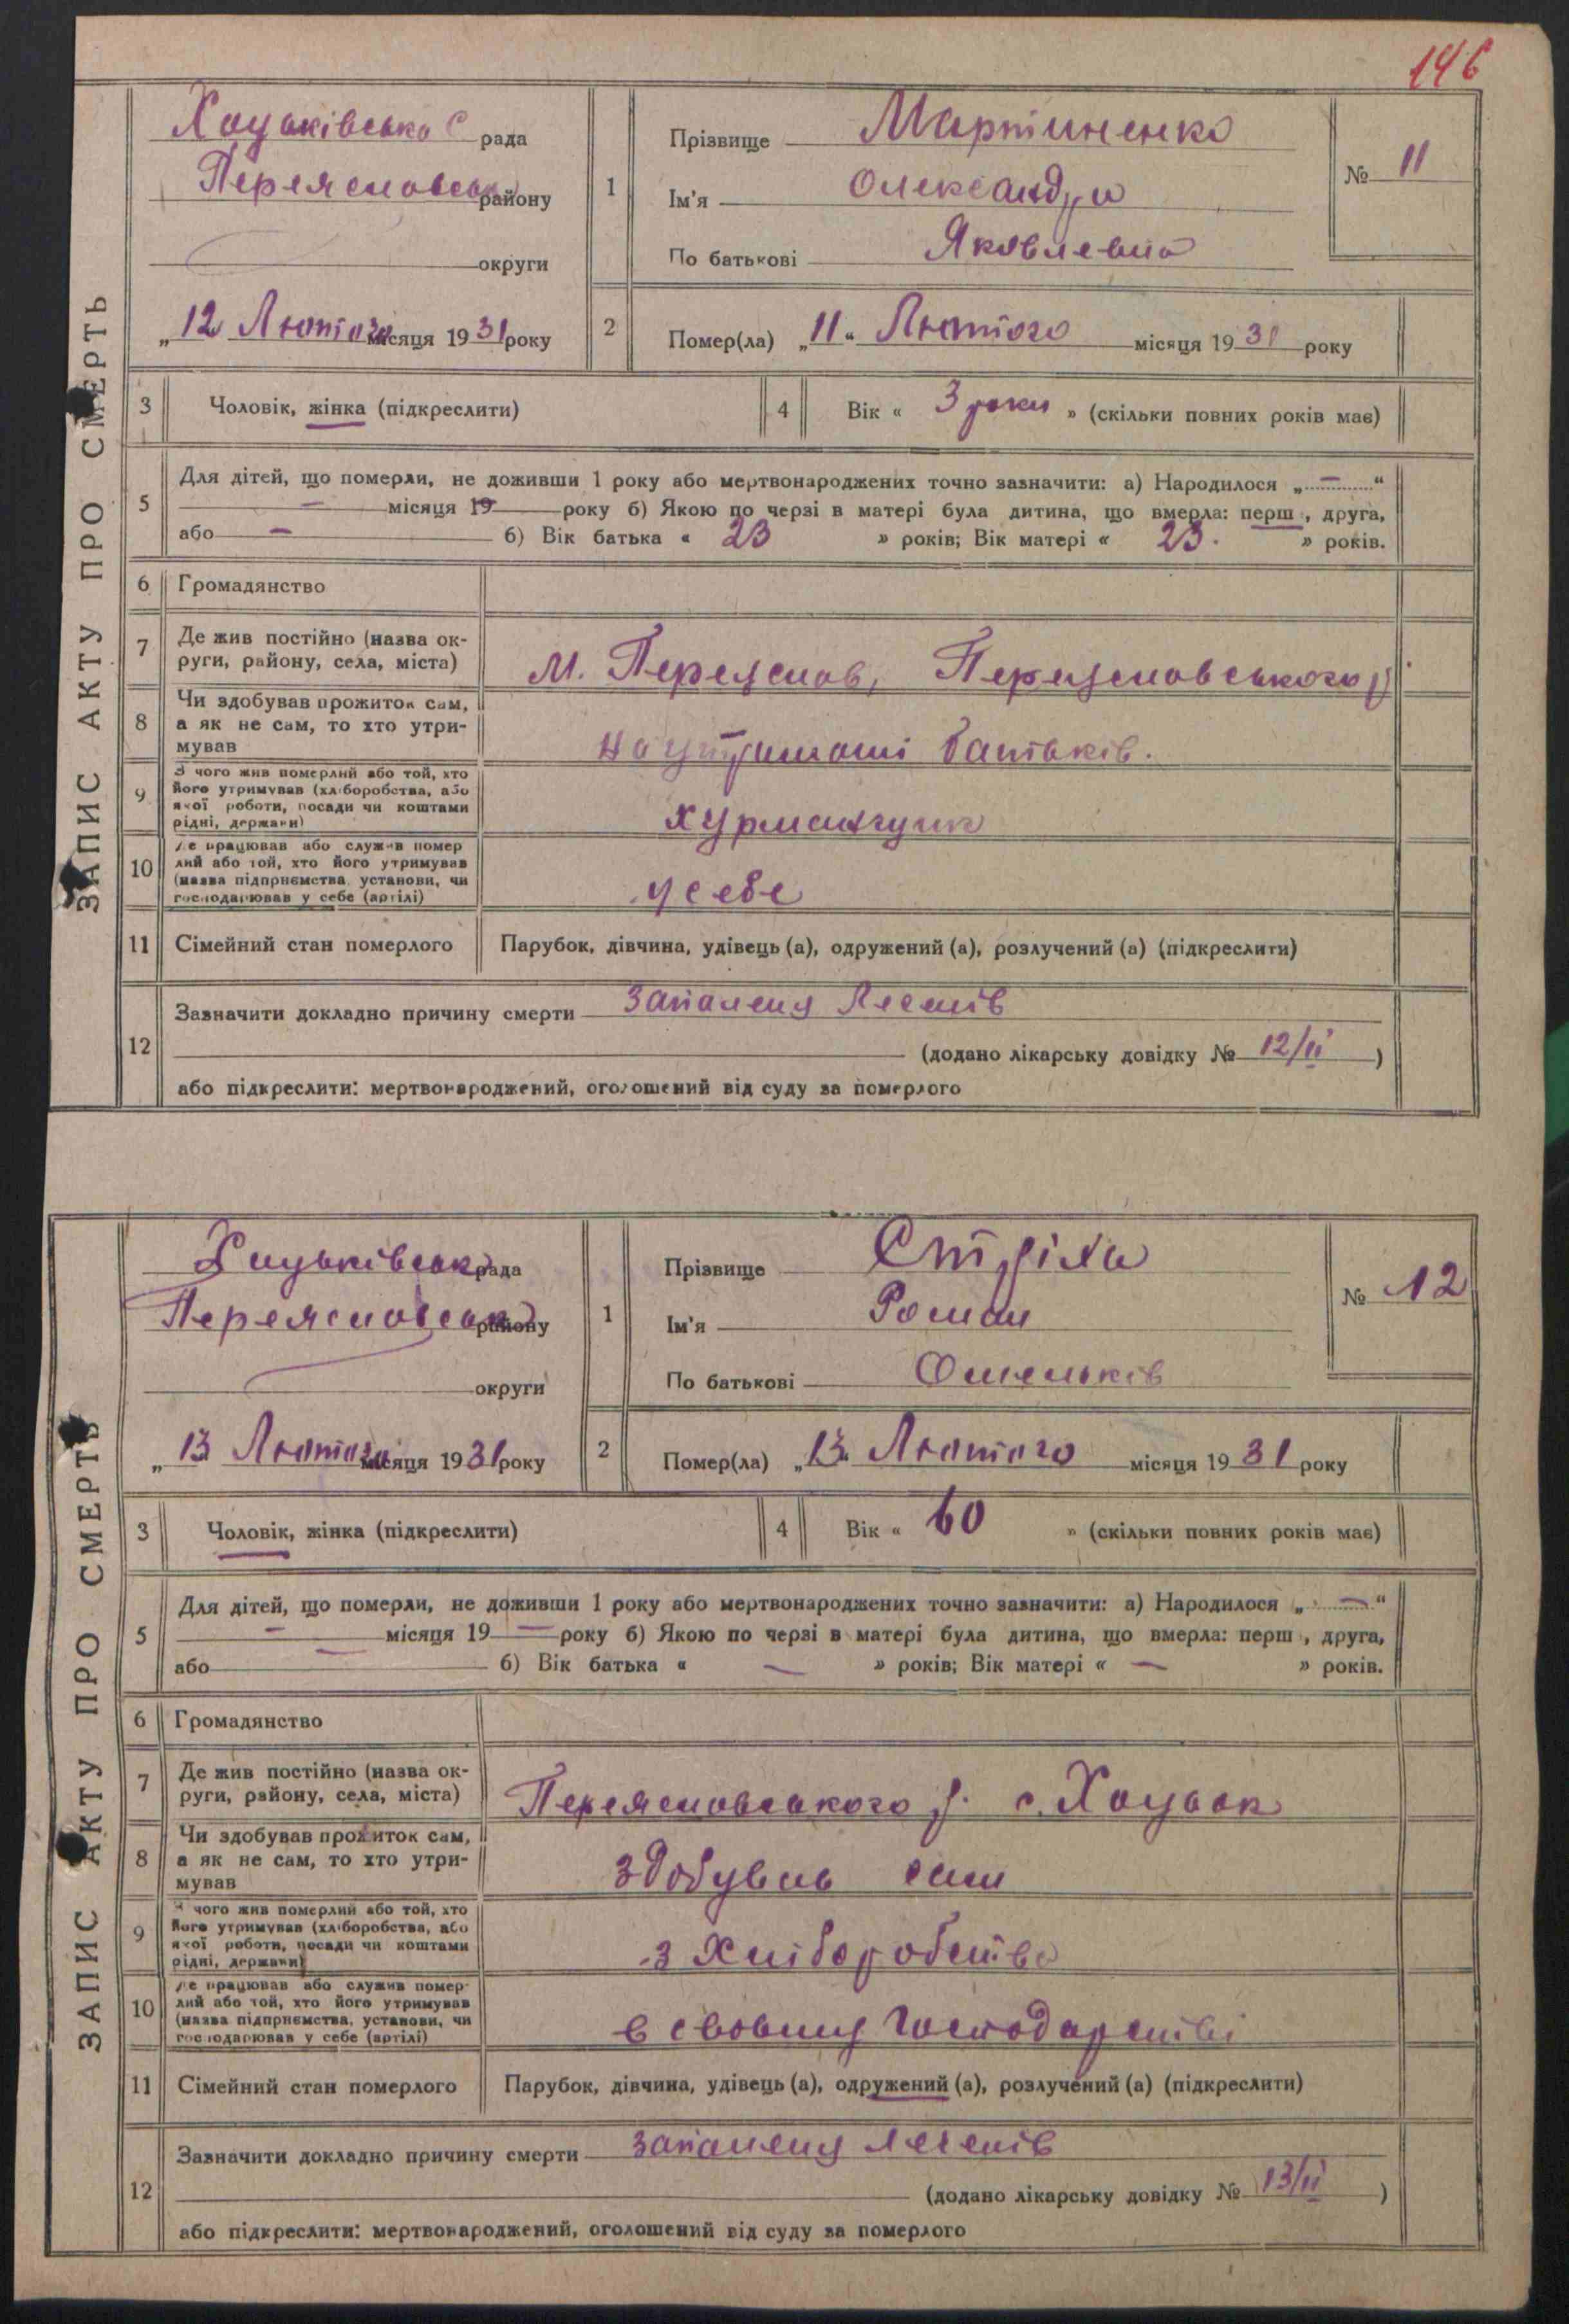 146
ЗАПИС АКТУ ПРО СМЕРТЬ
Хоцьківська С рада
Переяславськ району
округи
„12 Лютого місяця 1931 року
1
Прізвище Мартиненко
Ім'я Олександра
По батькові Яковлевна
№ 11
2
Помер(ла) „11“ Лютого місяця 1931 року
3 Чоловік, жінка (підкреслити)
4 Вік « 3 роки » (скільки повних років має)
5 Для дітей, що померли, не доживши 1 року або мертвонароджених точно зазначити: а) Народилося „ — “
— місяця 19— року б) Якою по черзі в матері була дитина, що вмерла: перш , друга,
або — б) Вік батька « 23 » років; Вік матері « 23. » років.
6 Громадянство
7 Де жив постійно (назва ок-
руги, району, села, міста)
м. Переяслов, Переяславського р.
8 Чи здобував прожиток сам,
а як не сам, то хто утри-
мував
на утриманні батьків.
9 З чого жив померлий або той, хто
його утримував (хліборобства, або
якої роботи, посади чи коштами
рідні, держави)
10 Де працював або служив помер
лий або той, хто його утримував
(назва підприємства, установи, чи
господарював у себе (артілі)
у себе
11 Сімейний стан померлого Парубок, дівчина, удівець (а), одружений (а), розлучений (а) (підкреслити)
12 Зазначити докладно причину смерти Запалення Легенів
(додано лікарську довідку № 12/II )
або підкреслити: мертвонароджений, оголошений від суду за померлого
ЗАПИС АКТУ ПРО СМЕРТЬ
Хоцьківська рада
Переяславськ району
округи
„13 Лютого місяця 1931 року
1
Прізвище Стріха
Ім'я Роман
По батькові Омельків
№ 12
2
Помер(ла) „13 Лютого місяця 1931 року
3 Чоловік, жінка (підкреслити)
4 Вік « 60 » (скільки повних років має)
5 Для дітей, що померли, не доживши 1 року або мертвонароджених точно зазначити: а) Народилося „ — “
— місяця 19— року б) Якою по черзі в матері була дитина, що вмерла: перш , друга,
або — б) Вік батька « — » років; Вік матері « — » років.
6 Громадянство
7 Де жив постійно (назва ок-
руги, району, села, міста)
Переяславського р. с. Хоцьок
8 Чи здобував прожиток сам,
а як не сам, то хто утри-
мував
здобував сам
9 З чого жив померлий або той, хто
його утримував (хліборобства, або
якої роботи, посади чи коштами
рідні, держави)
з Хліборобства
10 Де працював або служив помер-
лий або той, хто його утримував
(назва підприємства, установи, чи
господарював у себе (артілі)
в своєму господарстві
11 Сімейний стан померлого Парубок, дівчина, удівець (а), одружений (а), розлучений (а) (підкреслити)
12 Зазначити докладно причину смерти Запалення легенів
(додано лікарську довідку № 13/II )
або підкреслити: мертвонароджений, оголошений від суду за померлого